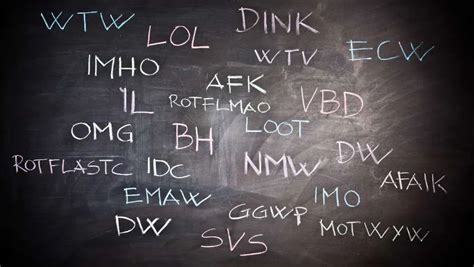 WTW LOL DINK
WTV ECW
IMHO AFK
IL ROTFLMAO VBD
OMG BH LOOT
ROTFLASTC IDC NMW DW
AFAIK
EMAW IMO
DW GGWP MOTWYW
SVS